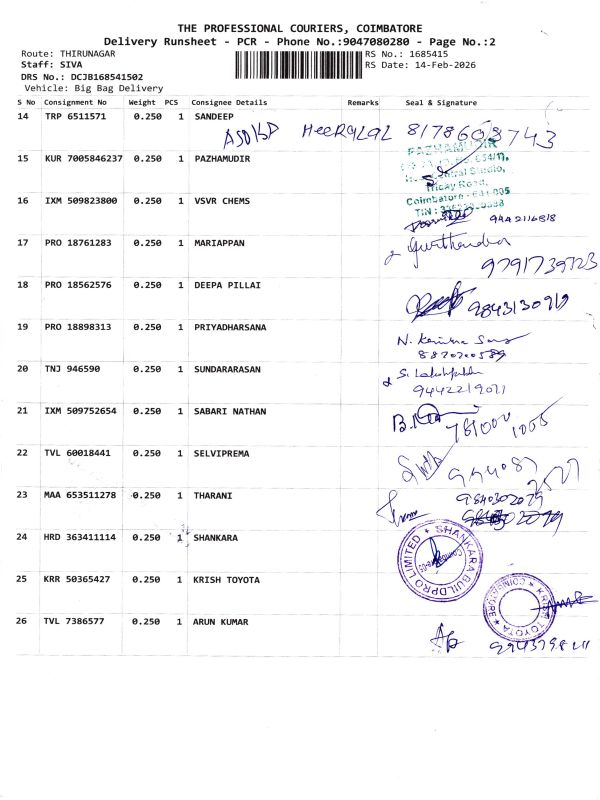 THE PROFESSIONAL COURIERS, COIMBATORE
Delivery Runsheet - PCR - Phone No.:9047080280 - Page No.:2
Route: THIRUNAGAR RS No.: 1685415
Staff: SIVA RS Date: 14-Feb-2026
DRS No.: DCJB168541502
Vehicle: Big Bag Delivery
S No Consignment No Weight PCS Consignee Details Remarks Seal & Signature
14 TRP 6511571 0.250 1 SANDEEP
HEERALAL 8178608743
15 KUR 7005846237 0.250 1 PAZHAMUDIR
PAZHAMUDIR
Trichy Road,
Coimbatore - 641 005
16 IXM 509823800 0.250 1 VSVR CHEMS
9442116818
17 PRO 18761283 0.250 1 MARIAPPAN
9791739723
18 PRO 18562576 0.250 1 DEEPA PILLAI
19 PRO 18898313 0.250 1 PRIYADHARSANA
8870700589
20 TNJ 946590 0.250 1 SUNDARARASAN
21 IXM 509752654 0.250 1 SABARI NATHAN
22 TVL 60018441 0.250 1 SELVIPREMA
23 MAA 653511278 0.250 1 THARANI
9840302079
24 HRD 363411114 0.250 1 SHANKARA
SHANKARA BUILDPRO LIMITED
25 KRR 50365427 0.250 1 KRISH TOYOTA
KRISH TOYOTA
COIMBATORE
26 TVL 7386577 0.250 1 ARUN KUMAR